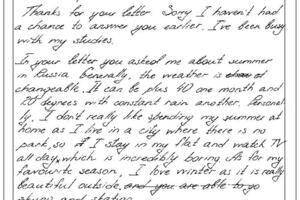 Thanks for your letter Sorry I haven't had
a chance to answer you earlier. I've been busy
with my studies.
In your letter you asked me about summer
in Russia Generally, the weather is
changeable. It can be plus 40 one month and
20 degrees with constant rain another. Personal
ly, I don't really like spending my summer at
home as I live in a city where there is no
park, so I stay in my flat and watch TV
all day, which is incredibly boring. As for my
favourite season, I love winter as it is really
beautiful outside, and you are able to go
skiing and skating